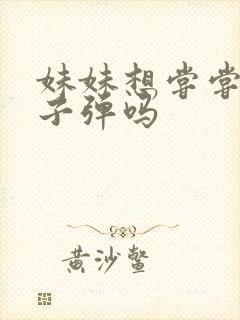 妹妹想尝尝
子弹吗
黄沙鳖